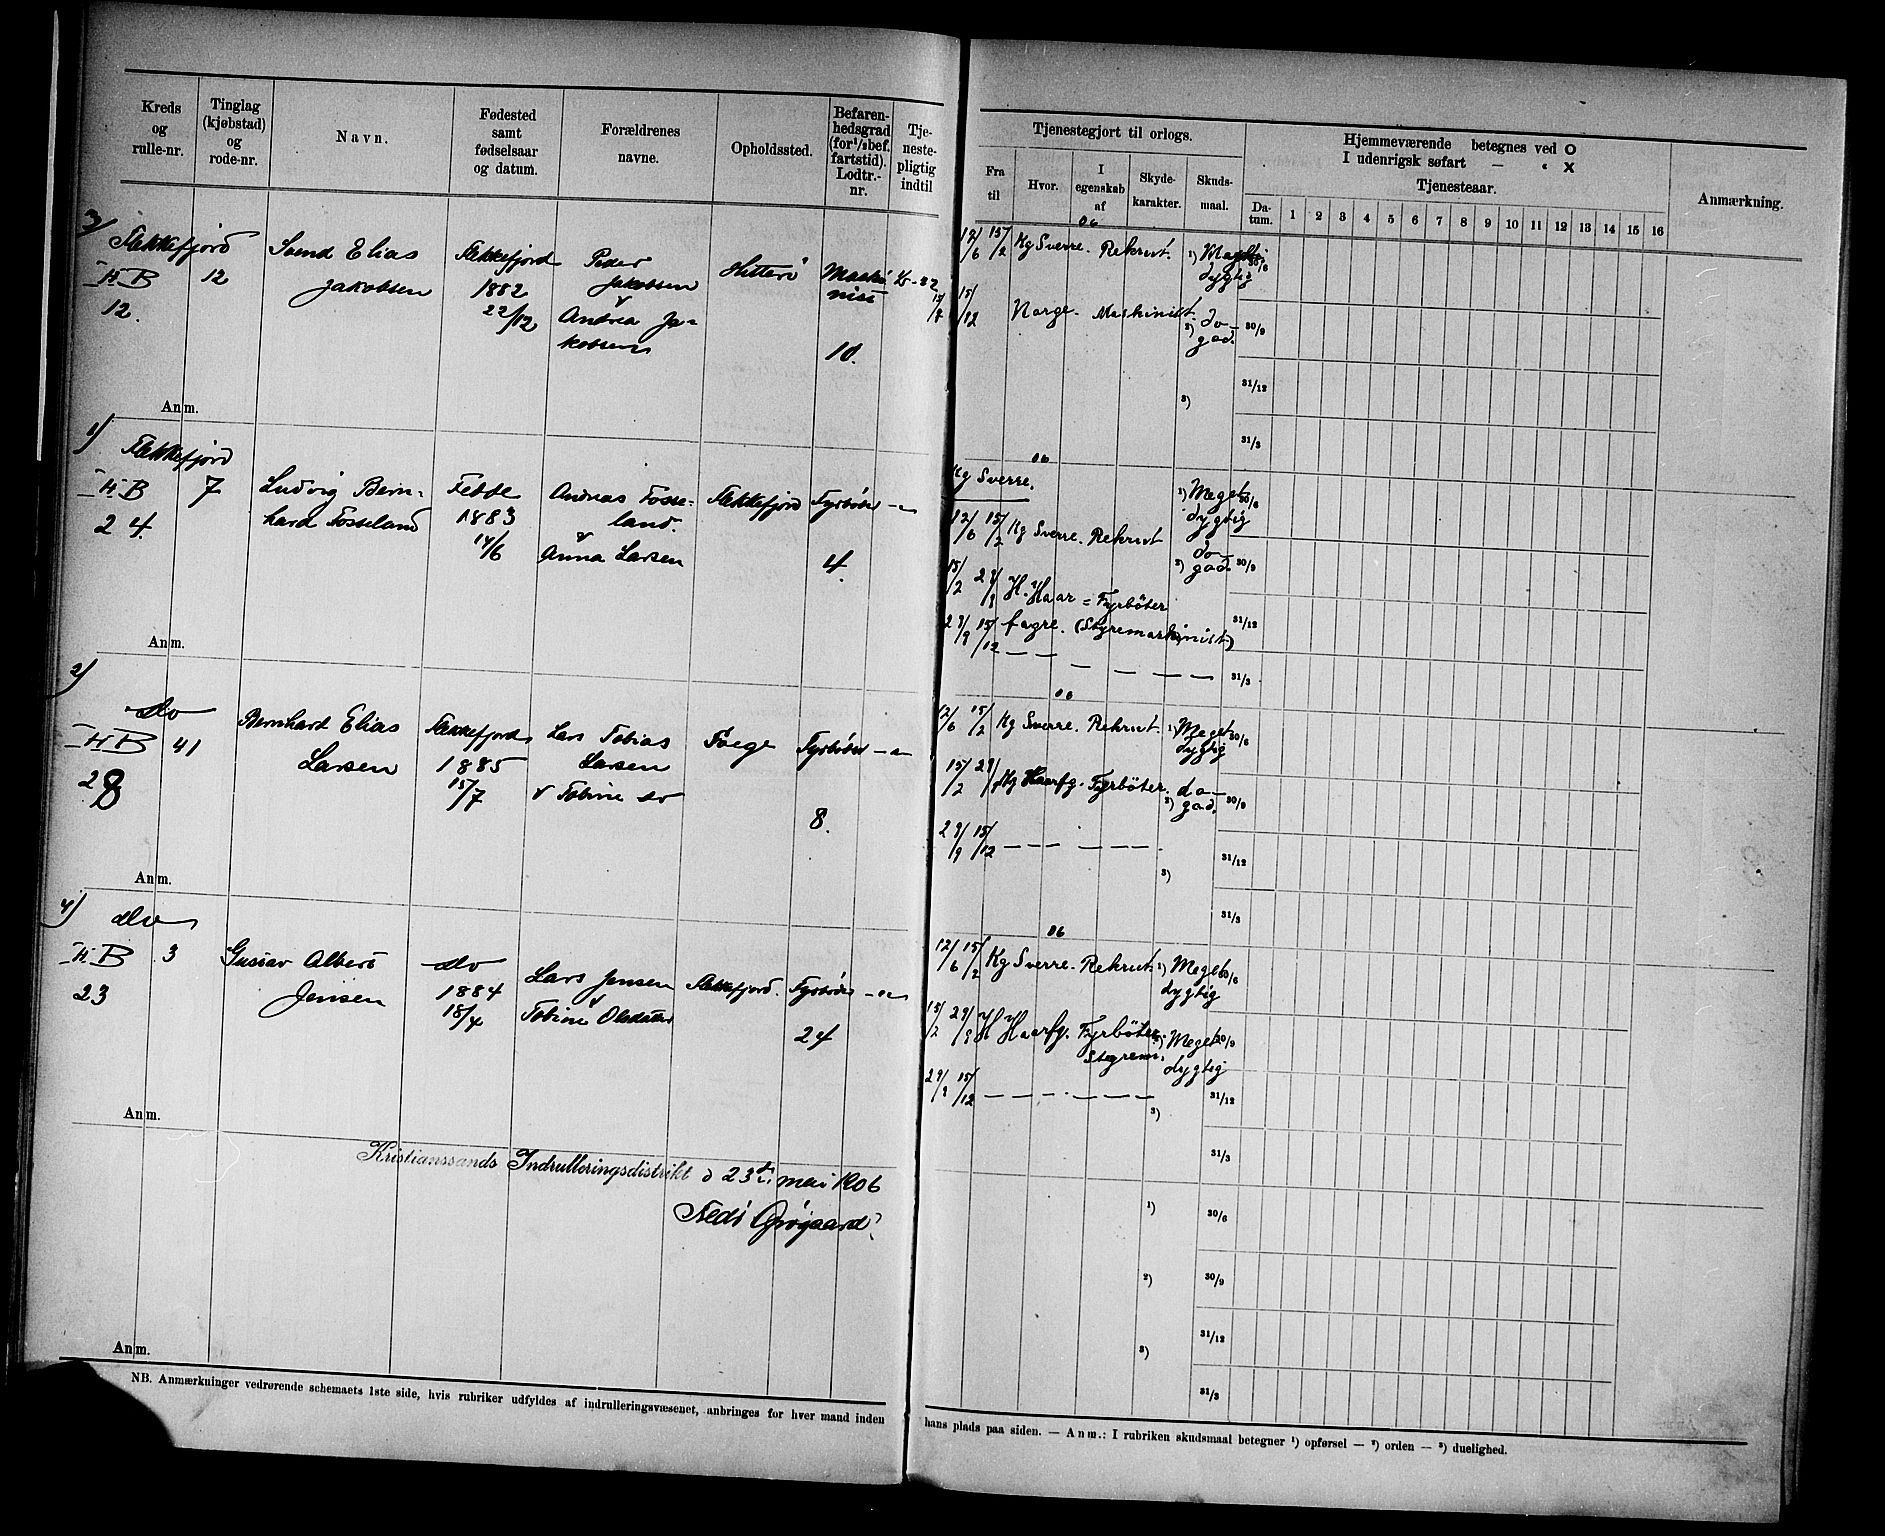 Kreds og rulle-nr.
Tinglag (kjøbstad) og rode-nr.
Navn.
Fødested samt fødselsaar og datum.
Forældrenes navne.
Opholdssted.
Befaren-hedsgrad (for 1/2 bef. fartstid). Lodtr.-nr.
Tje-neste-pligtig indtil
Tjenestegjort til orlogs.
Fra til
Hvor.
I egenskab af
Skyde-karakter.
Skuds-maal.
Hjemmeværende betegnes ved O
I udenrigsk søfart — " X
Tjenesteaar.
Da-tum. 1 2 3 4 5 6 7 8 9 10 11 12 13 14 15 16
Anmærkning.
3)
Flekkefjord
B 12
12.
Svend Elias
Jakobsen
Flekkefjord
1882
22/12
Peder
Jakobsen
Andrea Ja-
kobsen
Hitterö
Maski-
nist
10.
06
12/6 15/2 Kg Sverre. Rekrut. 1) Meget 30/6
dygtig
15/2 15/12 Norge. Maskinist. 2) do — 30/9
god.
31/12
3)
31/3
Anm.
1)
Flekkefjord
B 7
24.
Ludvig Bern-
hard Fosseland
Fedde
1883
14/6
Andreas Fosse-
land.
Anna Larsen
Flekkefjord
Fyrböter
4.
06
Kg Sverre.
12/6 15/2 Kg Sverre. Rekrut
1) Meget 30/6
dygtig
do —
2) god. 30/9
15/2 H. Haar = Fyrböter
fagre. (Styremaskinist) 31/12
15/12 — — — — — —
31/3
Anm.
2)
do
B 41
28
Bernhard Elias
Larsen
Flekkefjord
1885
15/7
Lars Tobias
Larsen
Tobine do
Fyrböter
8.
06
12/6 15/2 Kg Sverre. Rekrut. 1) Meget 30/6
dygtig
15/2 Kg Haarfg. Fyrböter. do —
2) god. 30/9
15/12 — — — —
3)
31/12
31/3
Anm.
4)
do
B 3
23
Gustav Albert
Jensen
do
1884
18/4
Lars Jensen
Tobine Olsdatter
Flekkefjord.
Fyrböter
24
06
12/6 15/2 Kg Sverre. Rekrut. 1) Meget 30/6
dygtig
15/2 H Haarfg. Fyrböter. 2) Meget 30/9
Styrem. dygtig
15/12 — — — — — —
3)
31/12
31/3
Anm.
Kristianssands Indrulleringsdistrikt d 23 mai 1906
Grögaard
1)
30/6
2)
30/9
31/12
3)
31/3
Anm.
NB. Anmærkninger vedrørende schemaets 1ste side, hvis rubriker udfyldes af indrulleringsvæsenet, anbringes for hver mand inden hans plads paa siden. — Anm.: I rubriken skudsmaal betegner 1) opførsel — 2) orden — 3) duelighed.